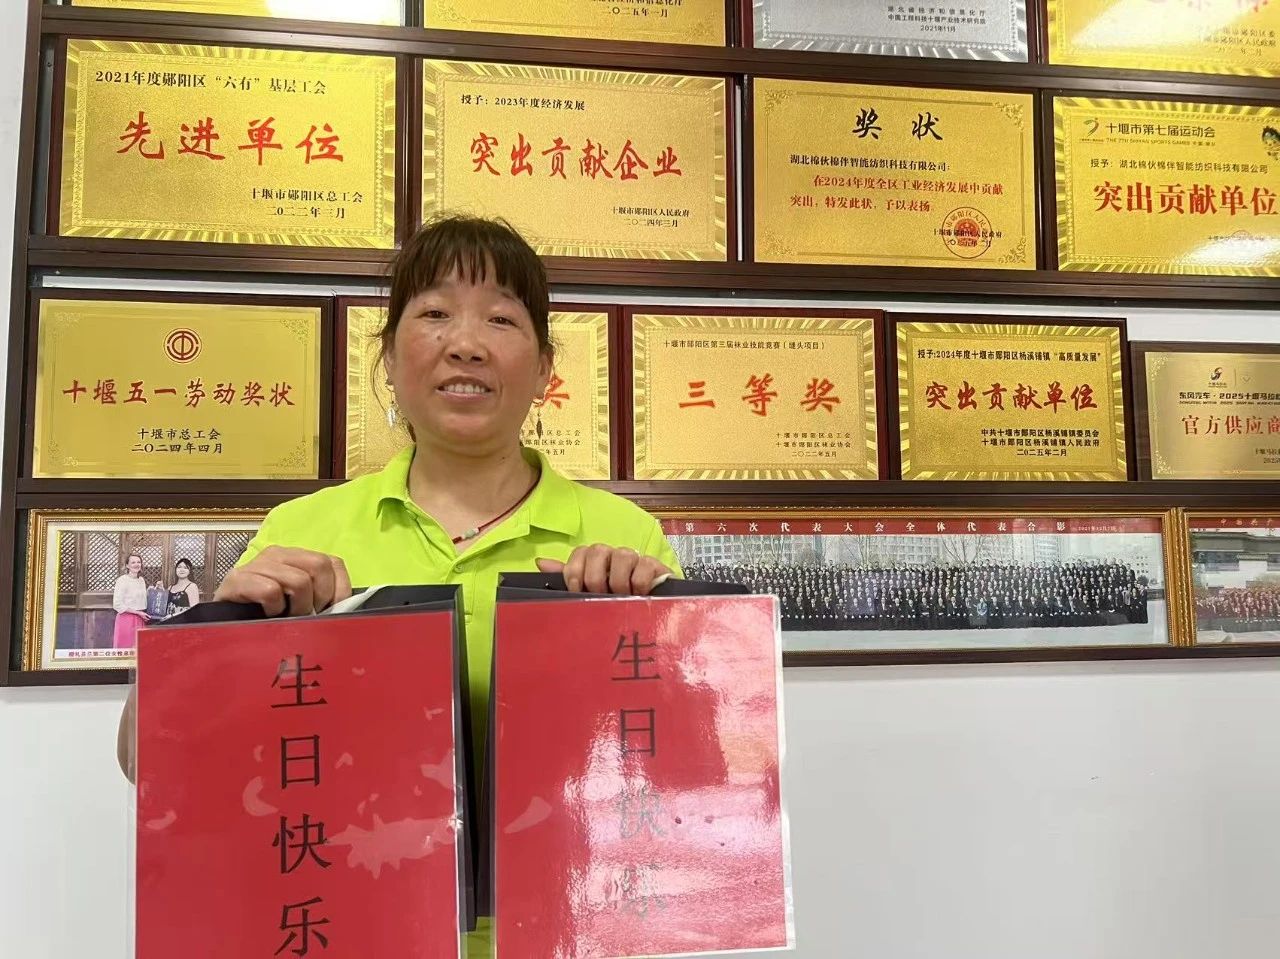 二〇二五年一月
湖北省经济和信息化厅
中国工程科技十堰产业技术研究院
2021年11月
2021年度郧阳区“六有”基层工会
先进单位
十堰市郧阳区总工会
二〇二二年三月
授予：2023年度经济发展
突出贡献企业
十堰市郧阳区人民政府
二〇二四年三月
奖状
湖北棉伙棉伴智能纺织科技有限公司：
在2024年度全区工业经济发展中贡献
突出，特发此状，予以表扬。
十堰市郧阳区人民政府
十堰市第七届运动会
THE 7TH SHIYAN SPORTS GAMES
授予：湖北棉伙棉伴智能纺织科技有限公司
突出贡献单位
十堰五一劳动奖状
十堰市总工会
二〇二四年四月
奖
十堰市郧阳区第三届袜业技能竞赛（缝头项目）
三等奖
十堰市郧阳区总工会
十堰市郧阳区袜业协会
二〇二二年五月
授予:2024年度十堰市郧阳区杨溪铺镇“高质量发展”
突出贡献单位
中共十堰市郧阳区杨溪铺镇委员会
十堰市郧阳区杨溪铺镇人民政府
二〇二五年二月
东风汽车·2025十堰马拉松
官方供应商
第六次代表大会全体代表合影
生日快乐
生日快乐